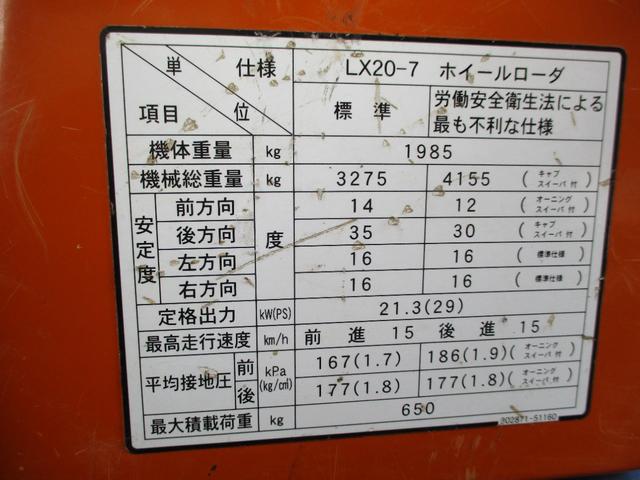 単 仕様 LX20-7 ホイールローダ
項目 位 標準 労働安全衛生法による
最も不利な仕様
機体重量 kg 1985
機械総重量 kg 3275 4155 (キャブ スイーパ付)
安定度 前方向 度 14 12 (オーニング スイーパ付)
後方向 35 30 (キャブ スイーパ付)
左方向 16 16 (標準仕様)
右方向 16 16 (標準仕様)
定格出力 kW(PS) 21.3(29)
最高走行速度 km/h 前進 15 後進 15
平均接地圧 前 kPa (kg/c㎡) 167(1.7) 186(1.9) (オーニング スイーパ付)
後 177(1.8) 177(1.8) (オーニング スイーパ付)
最大積載荷重 kg 650
302871-51160